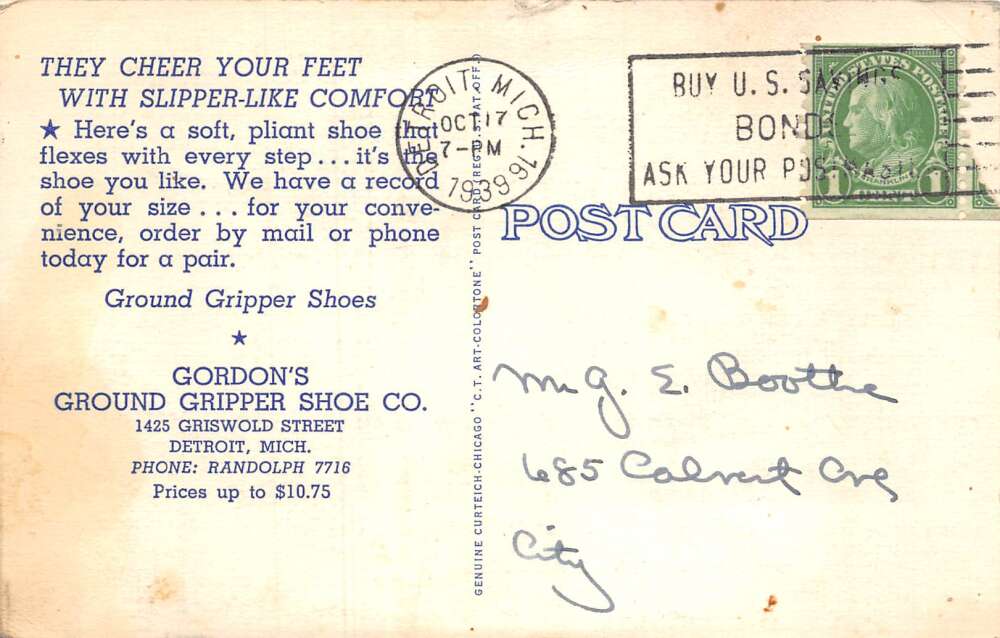 THEY CHEER YOUR FEET
WITH SLIPPER-LIKE COMFORT
★ Here's a soft, pliant shoe that
flexes with every step... it's the
shoe you like. We have a record
of your size ... for your conve-
nience, order by mail or phone
today for a pair.
Ground Gripper Shoes
★
GORDON'S
GROUND GRIPPER SHOE CO.
1425 GRISWOLD STREET
DETROIT, MICH.
PHONE: RANDOLPH 7716
Prices up to $10.75
GENUINE CURTEICH-CHICAGO "C.T. ART-COLORTONE" POST CARD (REG. U.S. PAT. OFF.)
DETROIT, MICH. 16
OCT 17
7-PM
1939
BUY U.S. SAVINGS
BONDS
ASK YOUR POSTMASTER
UNITED STATES POSTAGE
FRANKLIN
1 CENT 1
POST CARD
Mr G. E. Boothe
685 Calvert Ave
City